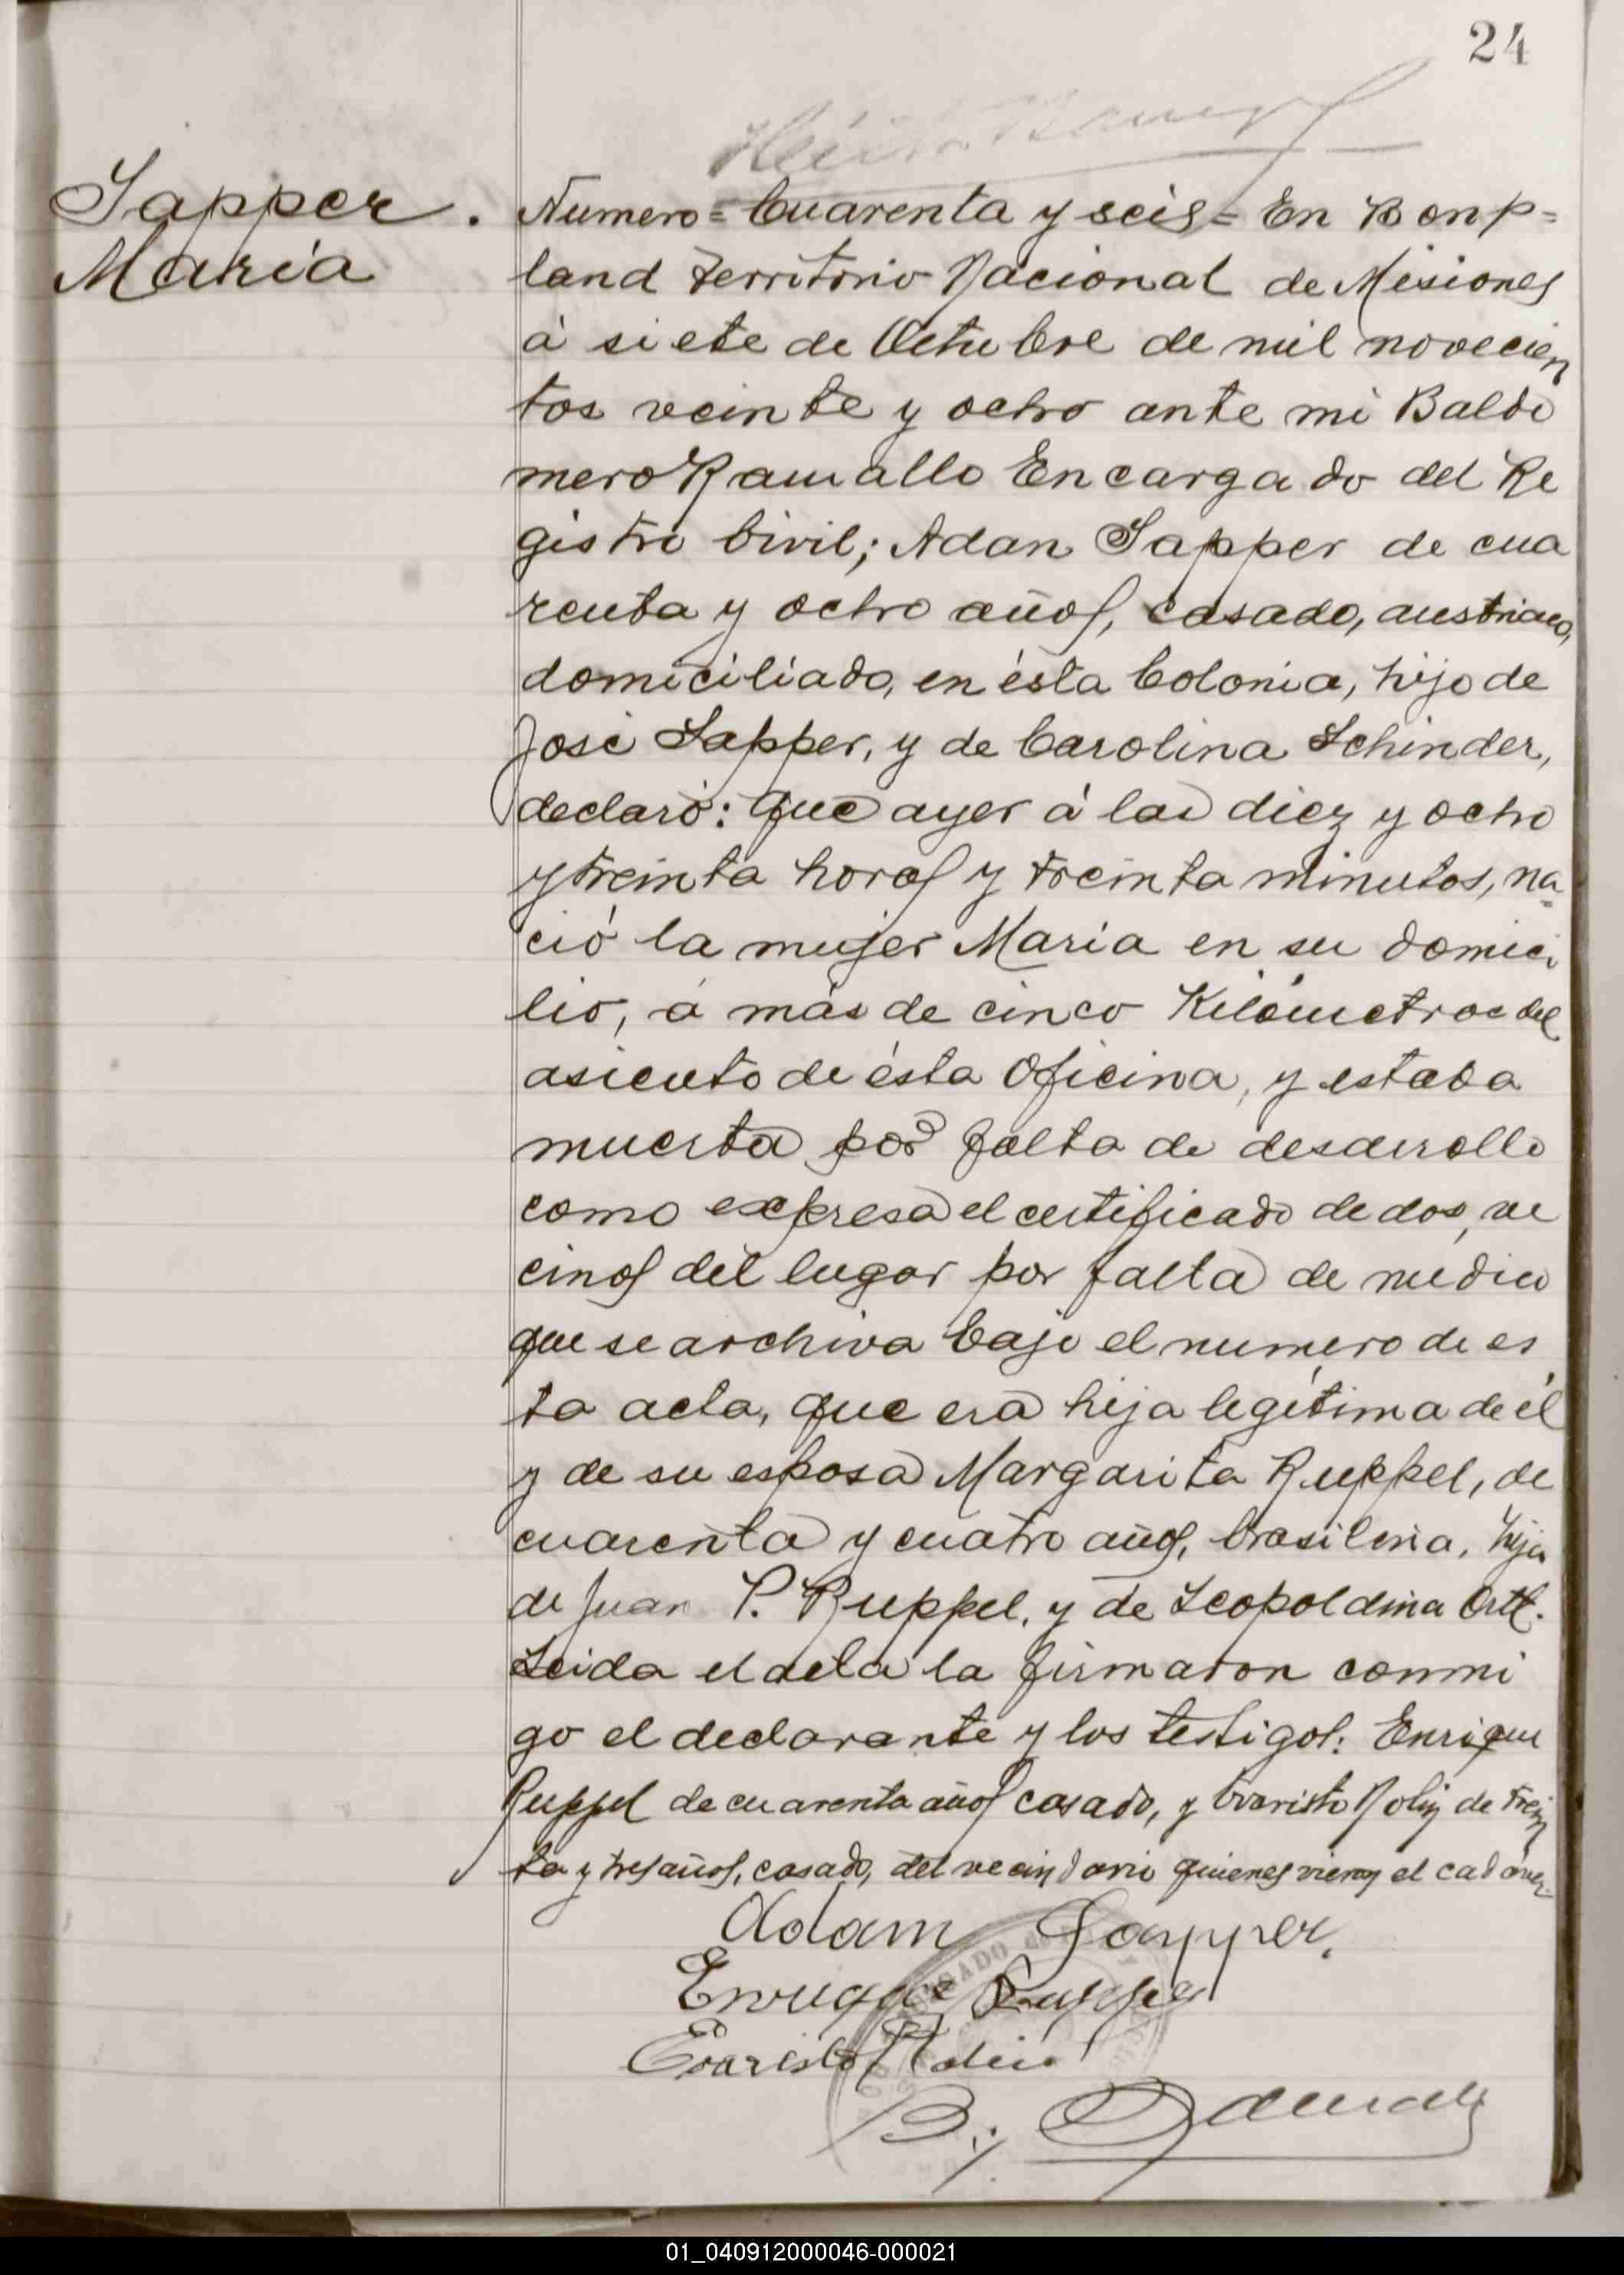 24
Sapper.
María
Numero = Cuarenta y seis = En Bonp=
land Territorio Nacional de Misiones
á siete de Octubre de mil novecien
tos veinte y ocho ante mi Baldo
mero Ramallo Encargado del Re
gistro Civil; Adan Sapper de cua
renta y ocho años, casado, austriaco,
domiciliado, en ésta Colonia, hijo de
José Sapper, y de Carolina Schinder,
declaró: que ayer á las diez y ocho
y treinta horas y treinta minutos, na
ció la mujer María en su domici
lio, á más de cinco Kilómetros del
asiento de ésta Oficina, y estaba
muerta por falta de desarrollo
como expresa el certificado de dos, ve
cinos del lugar por falta de medico
que se archiva bajo el numero de es
ta acta, que era hija legítima de él
y de su esposa Margarita Ruppel, de
cuarenta y cuatro años, brasilera, hija
de Juan P. Ruppel, y de Leopoldina Ortt.
Leida el acta la firmaron conmi
go el declarante y los testigos: Enrique
Ruppel de cuarenta años casado, y Evaristo Rolin de trein
ta y tres años, casado, del vecindario quienes vieron el cadáver.
Adam Sapper.
Enrique Ruppel
Evaristo Rolin
B. Ramallo
01_040912000046-000021